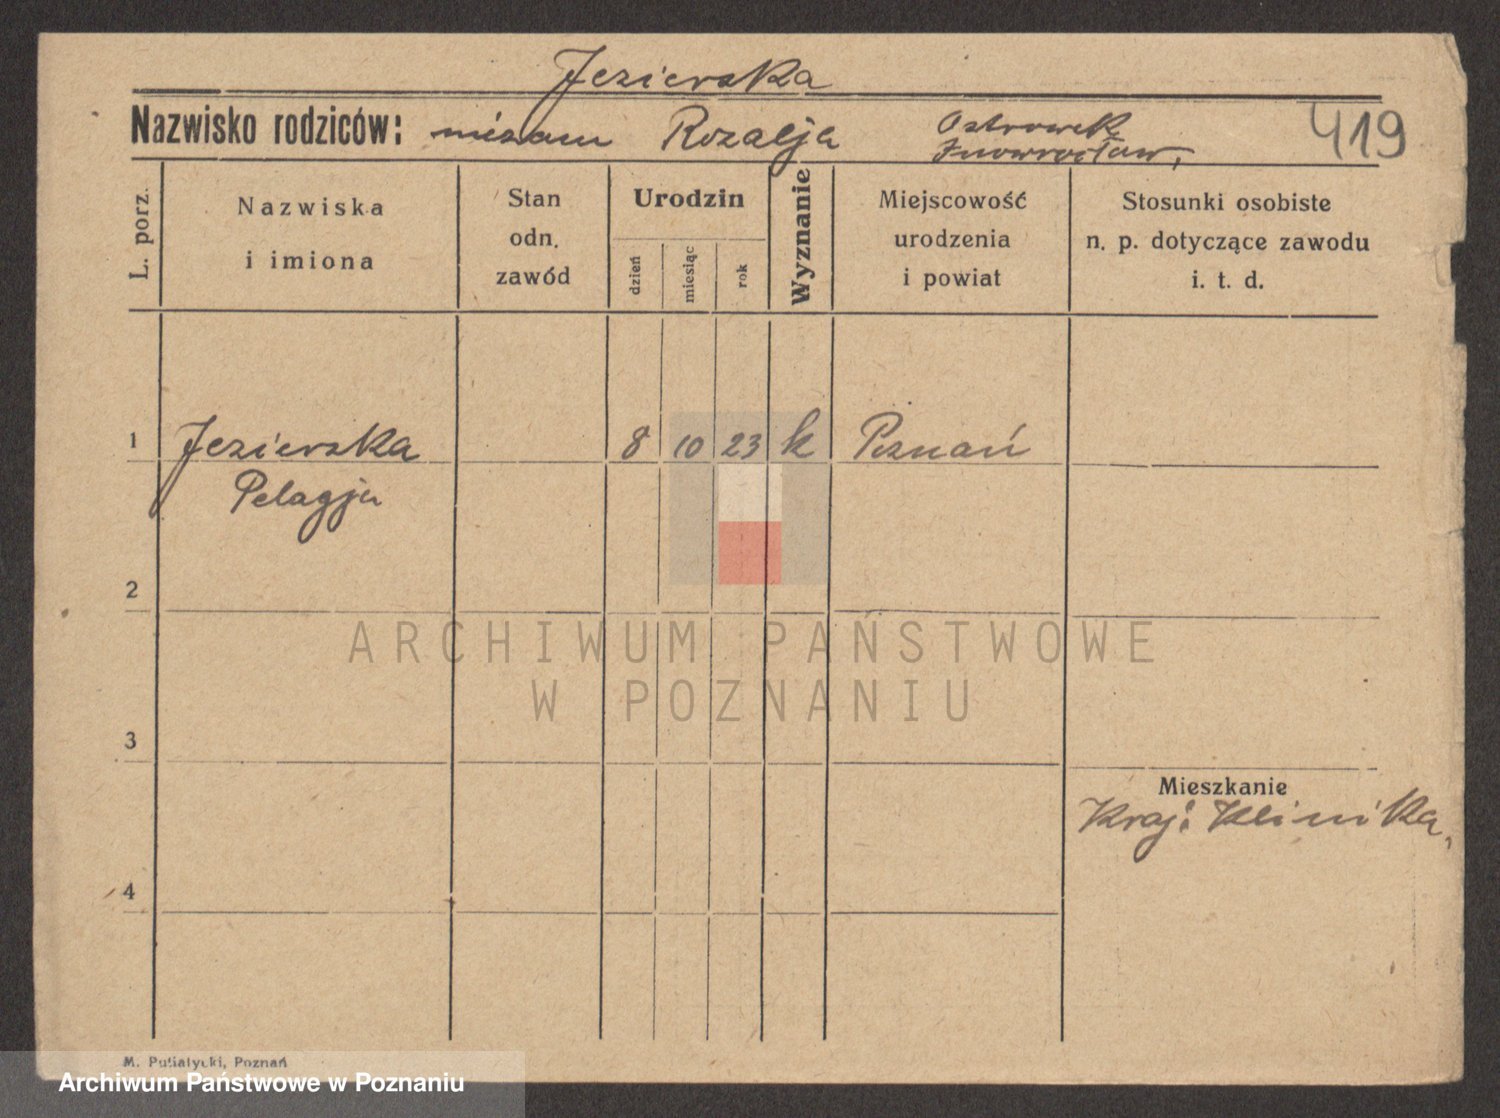 Jezierska
Nazwisko rodziców: niezam Rozalja Ostrowek
Inowrocław,
419
L. porz.
Nazwiska
i imiona
Stan
odn.
zawód
Urodzin
dzień
miesiąc
rok
Wyznanie
Miejscowość
urodzenia
i powiat
Stosunki osobiste
n. p. dotyczące zawodu
i. t. d.
1 Jezierska 8 10 23 k Poznań
Pelagja
2
ARCHIWUM PAŃSTWOWE
W POZNANIU
3
Mieszkanie
Kraj: Klinika,
4
M. Putiatycki, Poznań
Archiwum Państwowe w Poznaniu